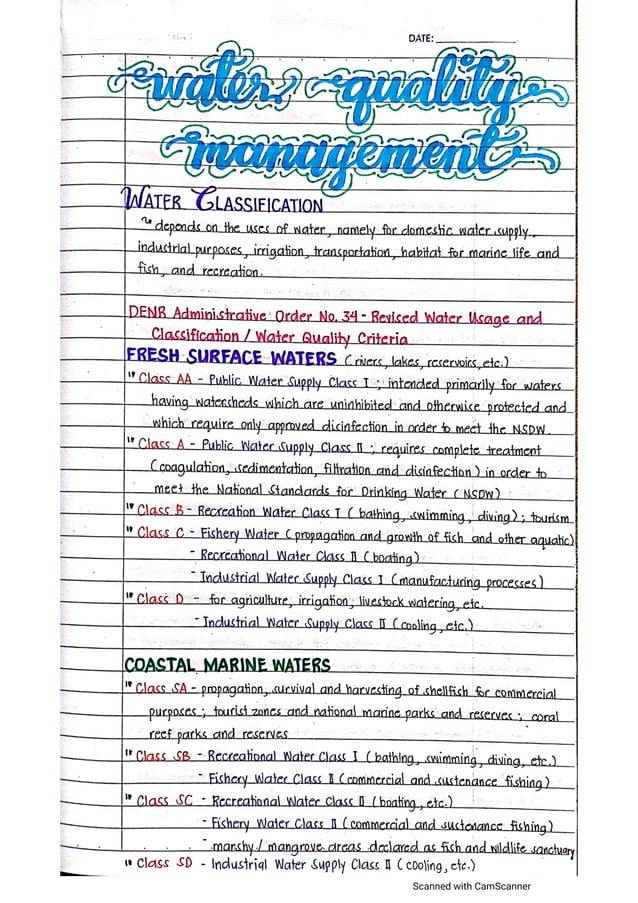 DATE:
water quality
management
WATER CLASSIFICATION
depends on the uses of water, namely for domestic water supply,
industrial purposes, irrigation, transportation, habitat for marine life and
fish, and recreation.
DENR Administrative Order No. 34 - Revised Water Usage and
Classification / Water Quality Criteria
FRESH SURFACE WATERS (rivers, lakes, reservoirs, etc.)
" Class AA - Public Water Supply Class I ; intended primarily for waters
having watersheds which are uninhibited and otherwise protected and
which require only approved dicinfection in order to meet the NSDW.
" Class A - Public Water Supply Class II ; requires complete treatment
(coagulation, sedimentation, filtration and disinfection) in order to
meet the National Standards for Drinking Water (NSDW)
" Class B - Recreation Water Class I (bathing, swimming, diving); tourism
" Class C - Fishery Water (propagation and growth of fish and other aquatic)
- Recreational Water Class II (boating)
- Industrial Water Supply Class I (manufacturing processes)
" Class D - for agriculture, irrigation, livestock watering, etc.
- Industrial Water Supply Class II (cooling, etc.)
COASTAL MARINE WATERS
" Class SA - propagation, survival and harvesting of shellfish for commercial
purposes ; tourist zones and national marine parks and reserves ; coral
reef parks and reserves
" Class SB - Recreational Water Class I (bathing, swimming, diving, etc.)
- Fishery Water Class II (commercial and sustenance fishing)
" Class SC - Recreational Water Class II (boating, etc.)
- Fishery Water Class II (commercial and sustenance fishing)
- marshy / mangrove areas declared as fish and wildlife sanctuary
" Class SD - Industrial Water Supply Class II (cooling, etc.)
Scanned with CamScanner